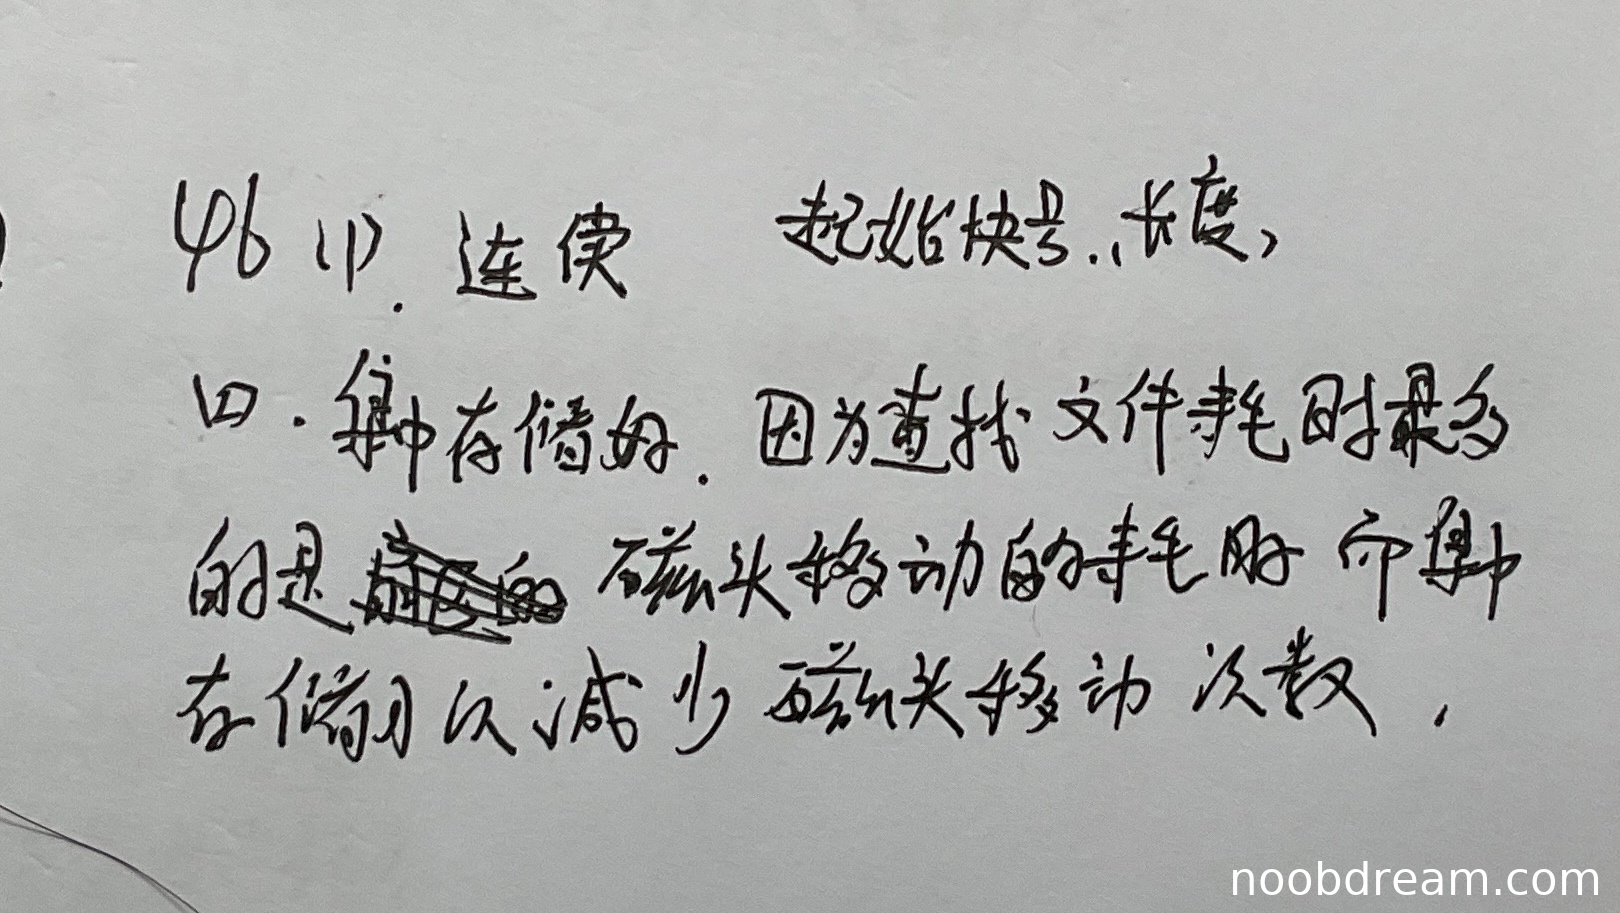 46 (1). 连续 起始快号.,长度,
(2). 集中存储好. 因为查找文件耗时最多
的是 磁头移动的耗时 而集中
存储可以减少磁头移动次数.
noobdream.com